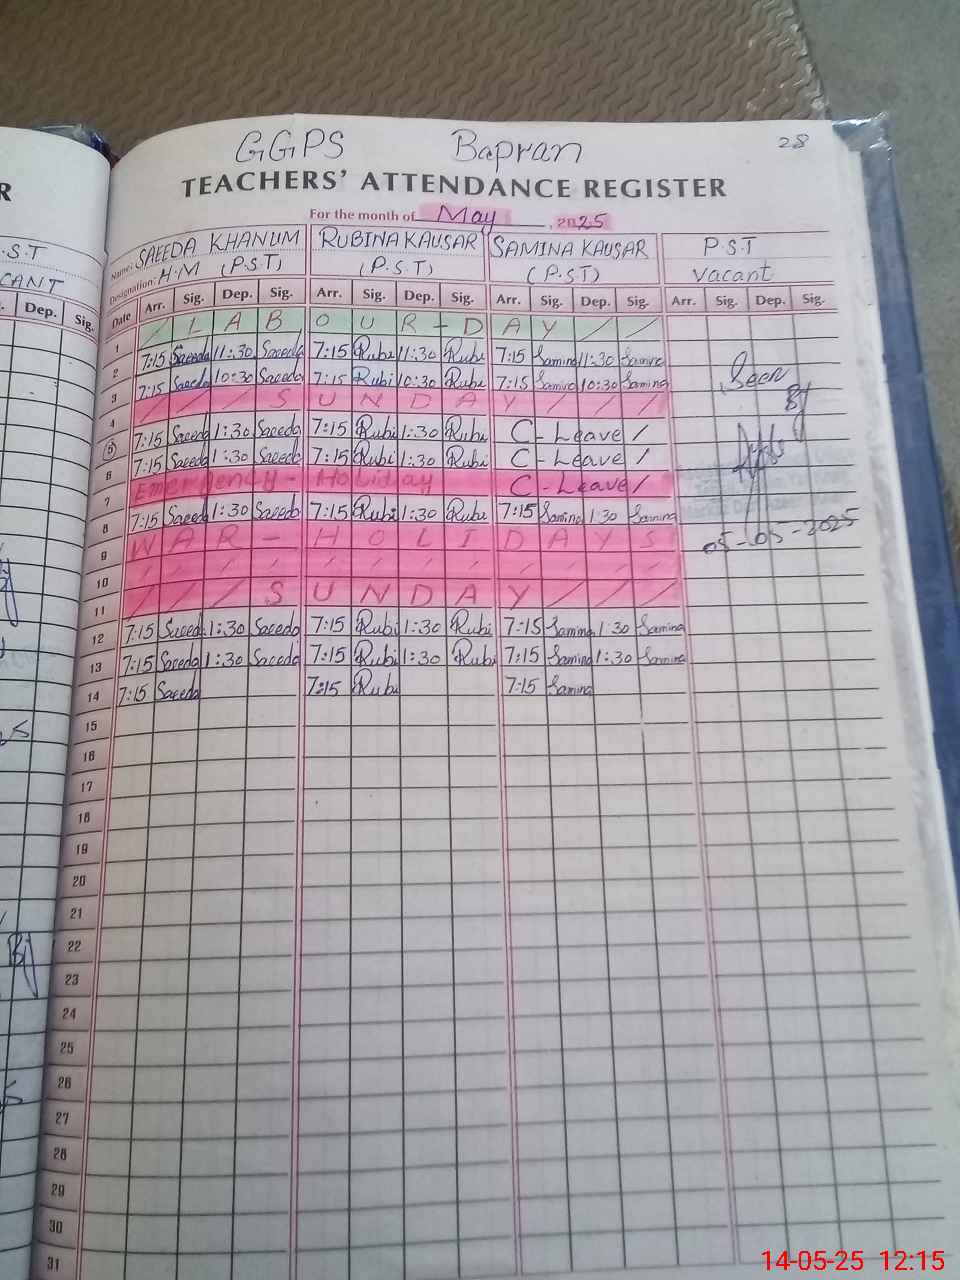 GGPS Bapran 28
TEACHERS' ATTENDANCE REGISTER
For the month of May, 2025
Name: SAEEDA KHANUM RUBINA KAUSAR SAMINA KAUSAR P.S.T
Designation: H.M (P.S.T) (P.S.T) (P.S.T) Vacant
Date Arr. Sig. Dep. Sig. Arr. Sig. Dep. Sig. Arr. Sig. Dep. Sig. Arr. Sig. Dep. Sig.
1 / L A B O U R - D A Y / /
2 7:15 Saeeda 11:30 Saeeda 7:15 Rubi 11:30 Rubi 7:15 Samina 11:30 Samina
3 7:15 Saeeda 10:30 Saeeda 7:15 Rubi 10:30 Rubi 7:15 Samina 10:30 Samina
4 / / / S U N D A Y / / /
5 7:15 Saeeda 1:30 Saeeda 7:15 Rubi 1:30 Rubi C - Leave /
6 7:15 Saeeda 1:30 Saeeda 7:15 Rubi 1:30 Rubi C - Leave /
7 Emergency - Holiday C - Leave /
8 7:15 Saeeda 1:30 Saeeda 7:15 Rubi 1:30 Rubi 7:15 Samina 1:30 Samina
9 W A R - H O L I D A Y S
10 / / / / / / / / / / / /
11 / / / S U N D A Y / / /
12 7:15 Saeeda 1:30 Saeeda 7:15 Rubi 1:30 Rubi 7:15 Samina 1:30 Samina
13 7:15 Saeeda 1:30 Saeeda 7:15 Rubi 1:30 Rubi 7:15 Samina 1:30 Samina
14 7:15 Saeeda 7:15 Rubi 7:15 Samina
15
16
17
18
19
20
21
22
23
24
25
26
27
28
29
30
31
Seen
By
05-05-2025
R
.S.T
CANT
Dep. Sig.
By
14-05-25 12:15